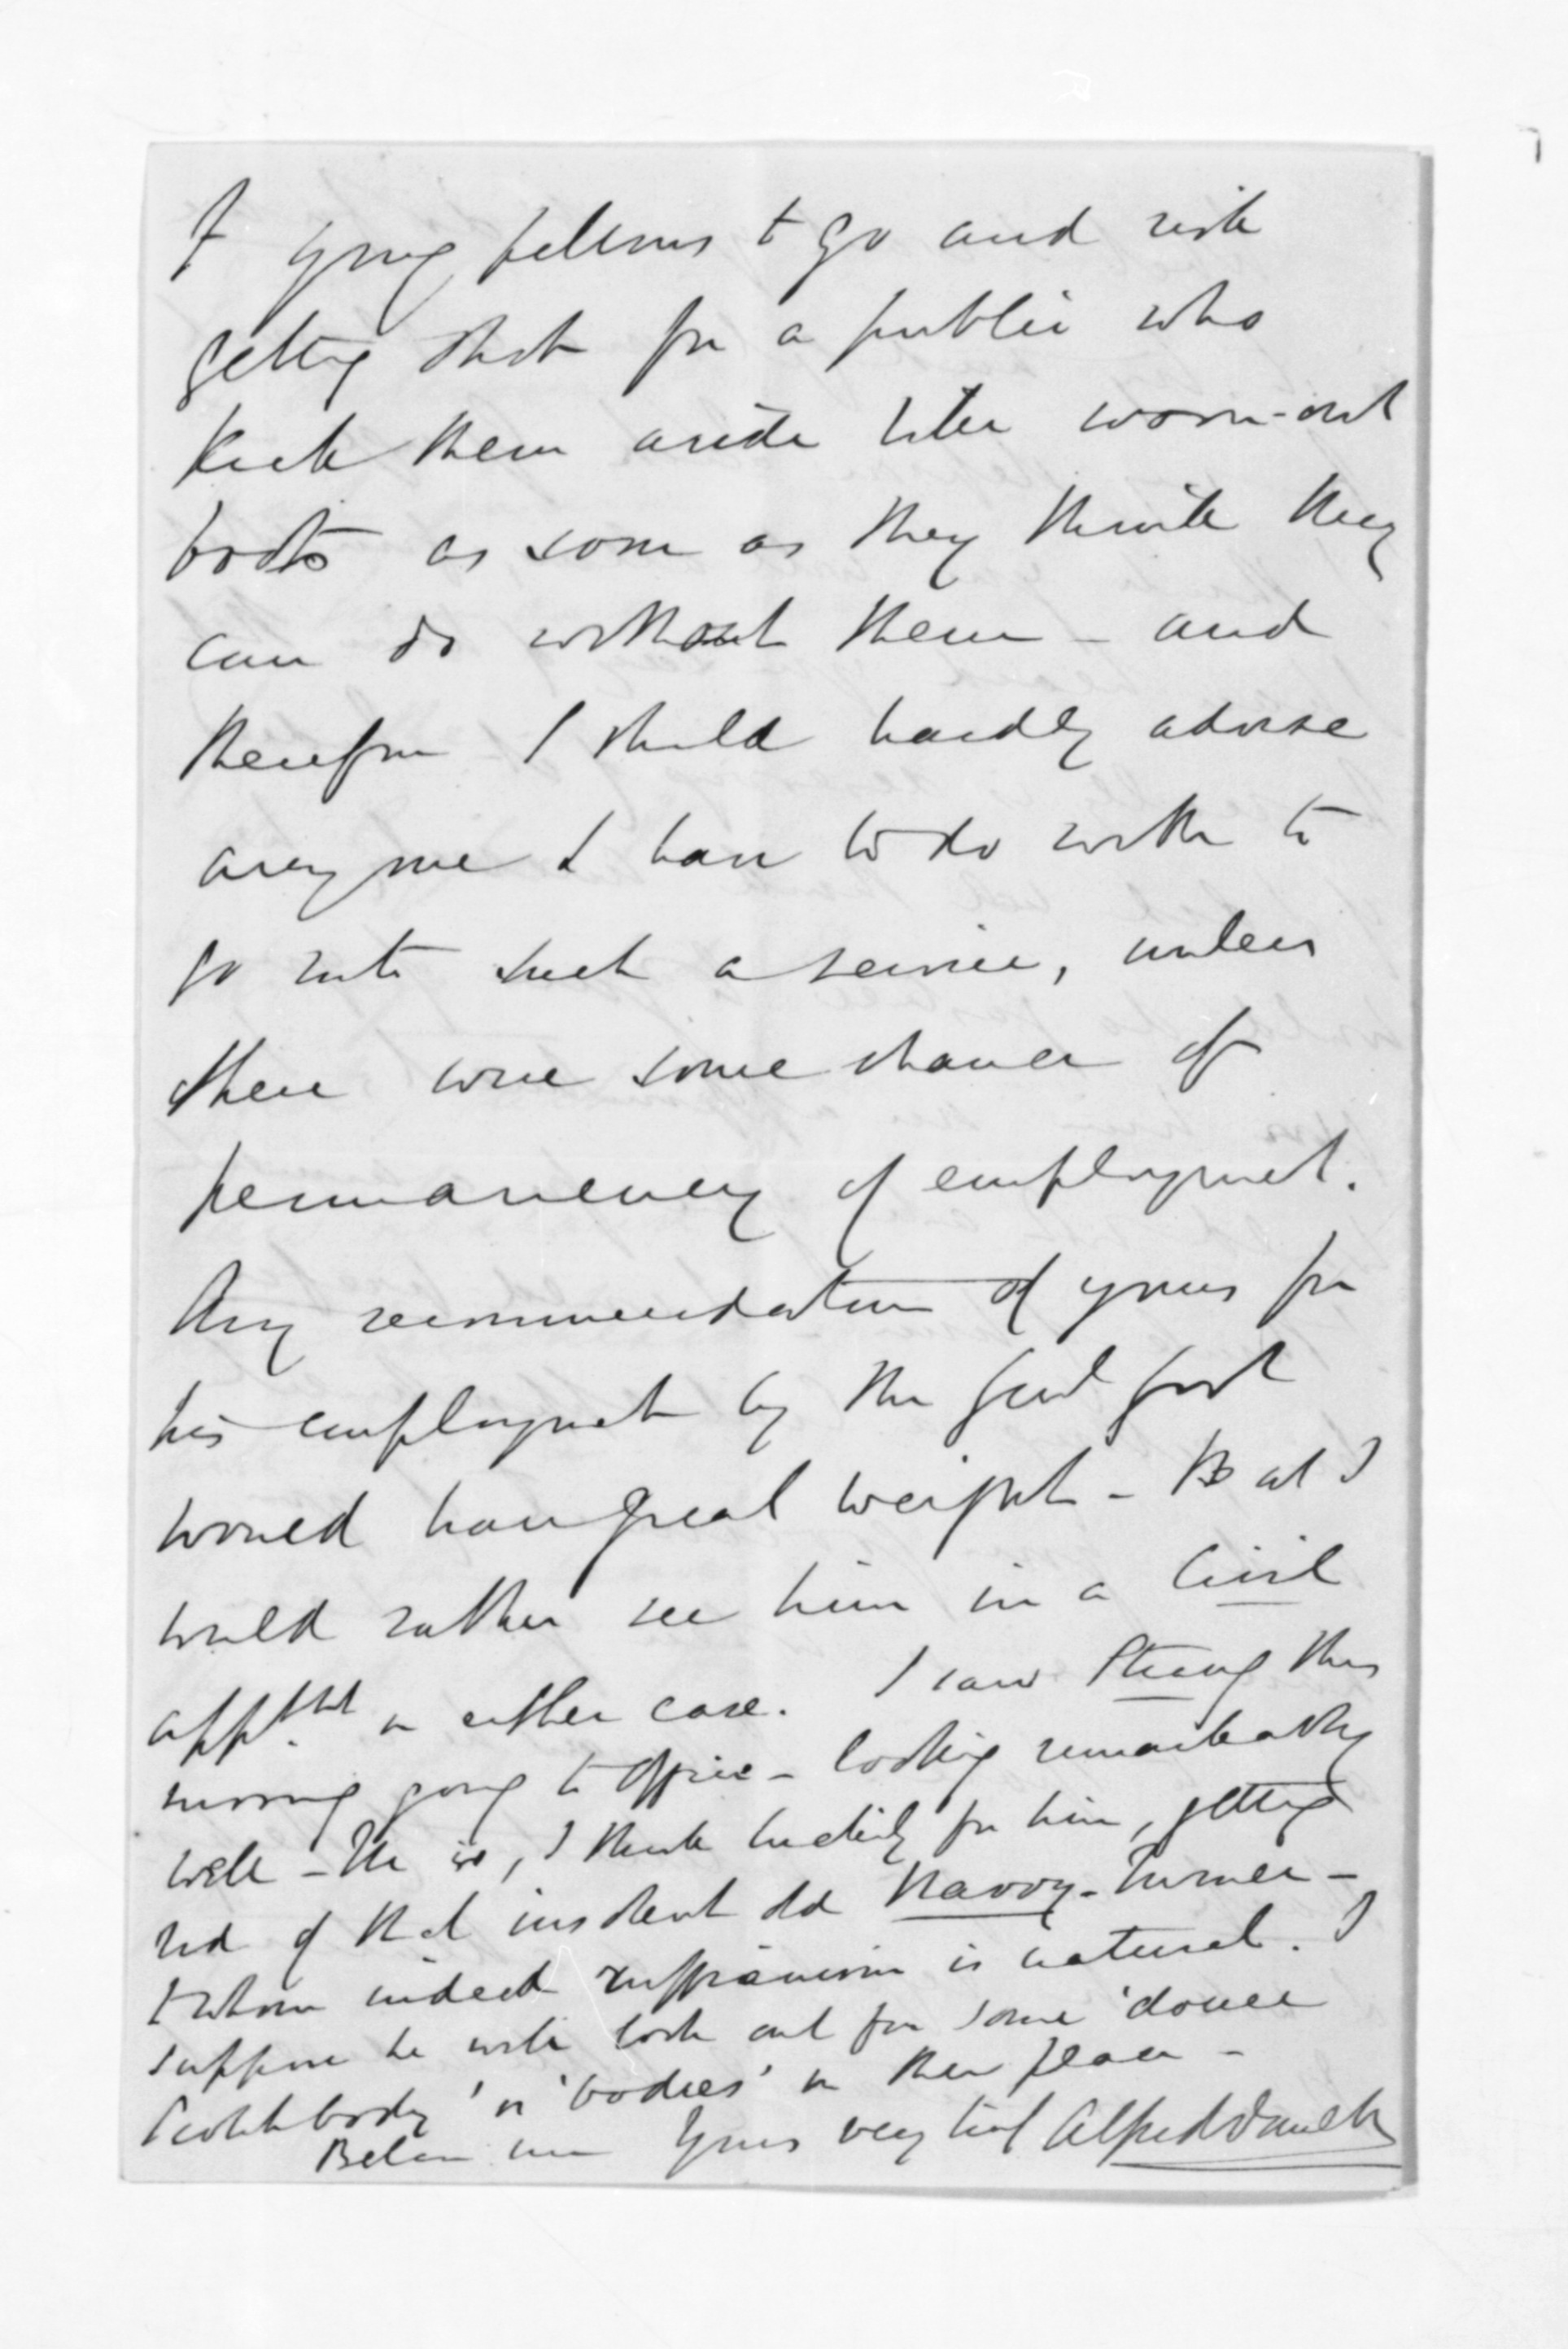 of young fellows to go and risk
getting shot for a public who
kick them aside like worn-out
boots as soon as they think they
can do without them - and
therefore I should hardly advise
any one I have to do with to
go into such a service, unless
there were some chance of
permanency of employment.
Any recommendation of yours for
his employment by the Genl Govt
would have great weight - But I
would rather see him in a Civil
apptmt in either case. I saw Strang this
morning going to Office - looking remarkably
well - He is, I think luckily for him, getting
rid of that insolent old Navvy - Turner -
to whom indeed ruffianism is natural. I
suppose he will look out for some 'douce
Scotch body' or 'bodies' in their place -
Believe me Yours very truly Alfred Domett